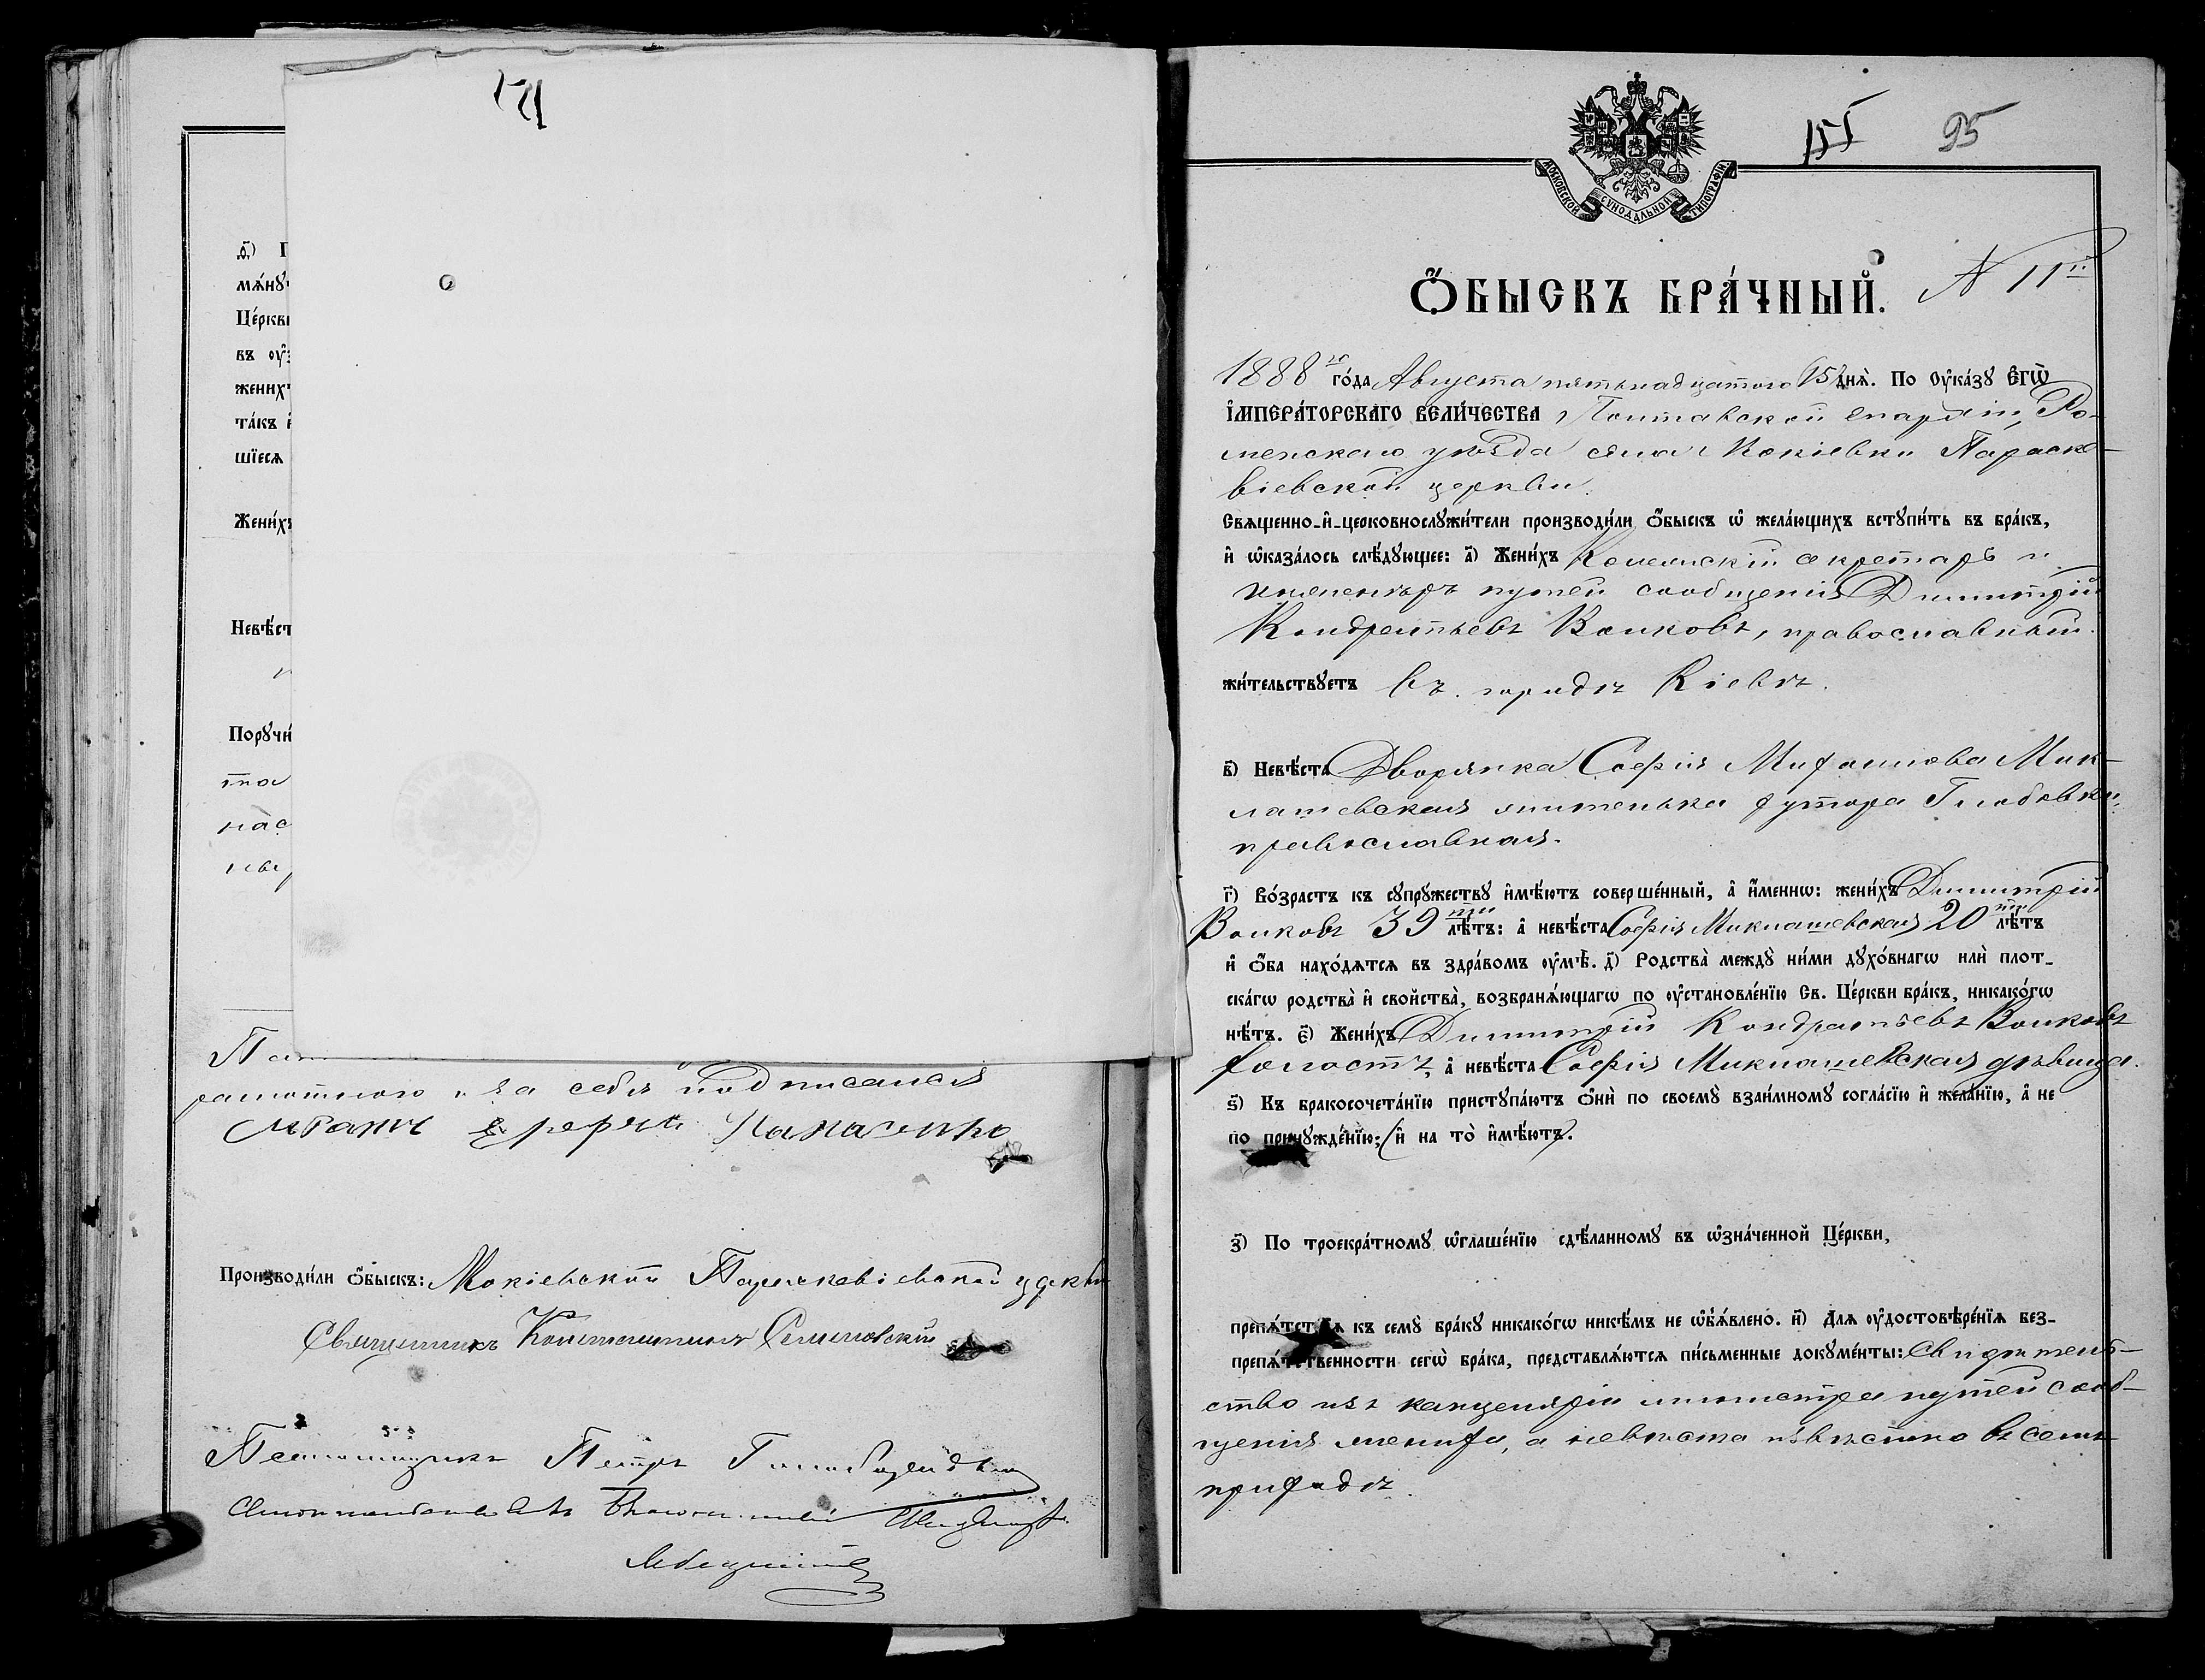 д҃) П
мѧ́нꙋ
Це́ркви
въ оу҆
жени́хъ
та́къ и҆
шїесѧ
Жени́хъ
Невѣ́ст
Порꙋчи́
та
нас
рамотного и за себя подписался
Производи́ли ѻ҆́быскъ: Мокіевской Параскевіевской церкви
Священникъ Константинъ
Псаломщикъ Петръ
155 95
МОСКОВСКОЙ СѴНОДАЛЬНОЙ ТИПОГРАФІИ.
Ѻ҆́БЫСКЪ БРА́ЧНЫЙ. N 11й
1888го го́да Августа пятьнадцатого 15 днѧ̀. По Оу҆ка́зꙋ Є҆ГѠ̀
І҆МПЕРА́ТОРСКАГО ВЕЛИ́ЧЕСТВА Полтавской епархіи, Ро-
менскаго уѣзда села Мокіевки Параске-
віевской церкви.
Свѧщенно-и҆-церковнослꙋжи́тели производи́ли ѻ҆́быскъ ѡ҆ жела́ющихъ встꙋпи́ть въ бра́къ,
и҆ ѡ҆каза́лось слѣ́дꙋющее: а҃) Жени́хъ Колежскій секретарь и
инженеръ путей сообщенія Димитрій
Кондратьевъ Волковъ, православный.
жи́тельствꙋетъ въ городѣ Кіевѣ.
в҃) Невѣ́ста Дворянка Софія Михаилова Мик-
лашевская жителька хутора Глобовки,
православная.
г҃) Во́зрастъ къ сꙋпрꙋ́жествꙋ и҆мѣ́ютъ соверше́нный, а҆ и҆́меннѡ: жени́хъ Димитрій
Волковъ 39ти лѣ́тъ: а҆ невѣ́ста Софія Миклашевская 20ти лѣ́тъ
и҆ ѻ҆́ба нахо́дѧтсѧ въ здра́вомъ оу҆мѣ̀. д҃) Родства̀ междꙋ̀ ни́ми дꙋхо́внагѡ и҆лѝ плот-
ска́гѡ родства̀ и҆ свойства̀, возбранѧ́ющагѡ по оу҆становле́нїю Св. Це́ркви бра́къ, никако́гѡ
нѣ́тъ. є҃) Жени́хъ Димитрій Кондратьевъ Волковъ
холостъ а҆ невѣ́ста Софія Миклашевская дѣвица.
ѕ҃) Къ бракосочета́нїю пристꙋпа́ютъ ѻ҆нѝ по своемꙋ̀ взаи́мномꙋ согла́сїю и҆ жела́нїю, а҆ не
по принꙋжде́нїю; (и҆ на то̀ и҆мѣ́ютъ).
з҃) По троекра́тномꙋ ѡ҆глаше́нїю сдѣ́ланномꙋ въ ѡ҆зна́ченной Це́ркви,
препѧ́тствїѧ къ семꙋ̀ бра́кꙋ никако́гѡ никѣ́мъ не ѡ҆б̾ѧ́влено. и҃) Для оу҆достовѣре́нїѧ без-
препѧ́тственности сегѡ̀ бра́ка, представлѧ́ютсѧ пи́сьменные докꙋме́нты: Свидѣтель-
ство изъ канцеляріи министра путей сооб-
щенія жениха, а невѣста извѣстна въ семъ
приходѣ.